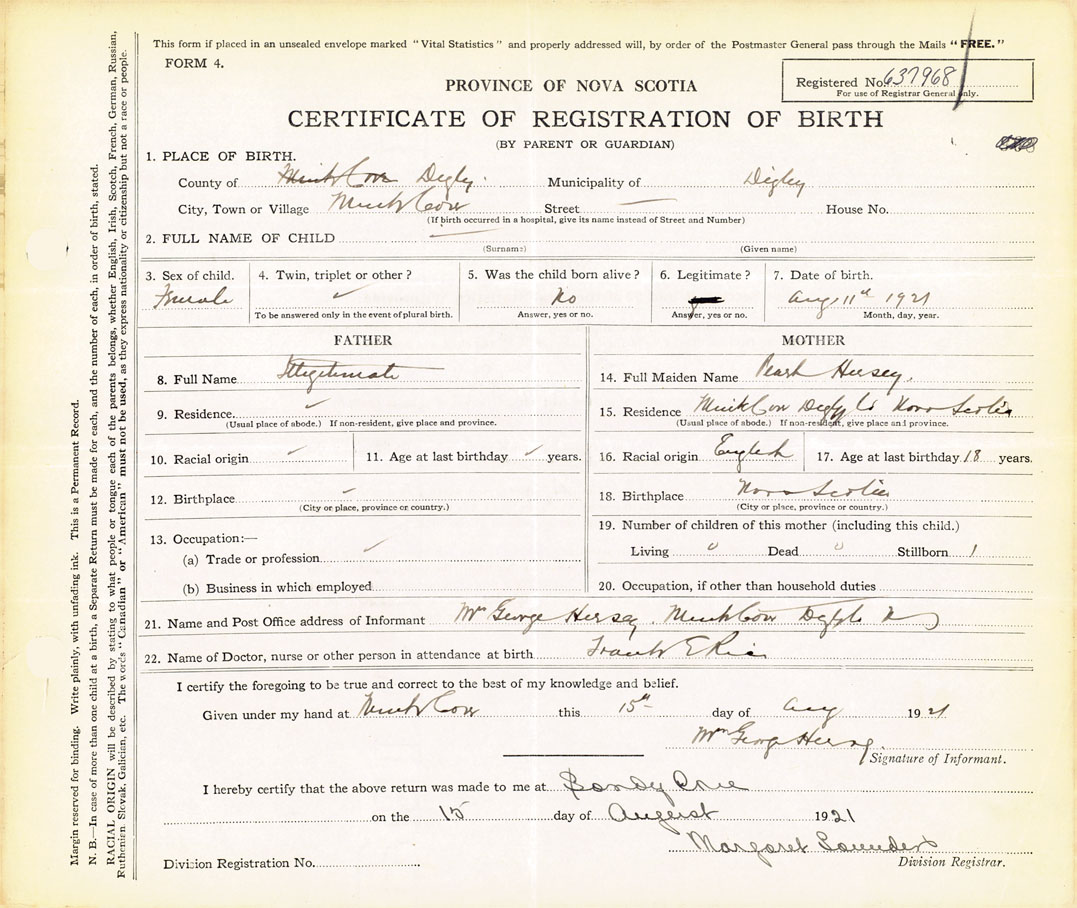 This form if placed in an unsealed envelope marked "Vital Statistics" and properly addressed will, by order of the Postmaster General pass through the Mails "FREE."
FORM 4.
Registered No. 637968
For use of Registrar General only.
PROVINCE OF NOVA SCOTIA
CERTIFICATE OF REGISTRATION OF BIRTH
(BY PARENT OR GUARDIAN)
1. PLACE OF BIRTH.
County of Mink Cove Digby Municipality of Digby
City, Town or Village Mink Cove Street — House No.
(If birth occurred in a hospital, give its name instead of Street and Number)
2. FULL NAME OF CHILD —
(Surname) (Given name)
3. Sex of child. 4. Twin, triplet or other? 5. Was the child born alive? 6. Legitimate? 7. Date of birth.
Female ✓ No Aug 11th 1921
To be answered only in the event of plural birth. Answer, yes or no. Answer, yes or no. Month, day, year.
FATHER
8. Full Name Illegitimate
9. Residence. ✓
(Usual place of abode.) If non-resident, give place and province.
10. Racial origin ✓ 11. Age at last birthday ✓ years.
12. Birthplace ✓
(City or place, province or country.)
13. Occupation:—
(a) Trade or profession ✓
(b) Business in which employed
MOTHER
14. Full Maiden Name Pearl Hersey.
15. Residence Mink Cove Digby Co Nova Scotia
(Usual place of abode.) If non-resident, give place and province.
16. Racial origin English 17. Age at last birthday 18 years.
18. Birthplace Nova Scotia
(City or place, province or country.)
19. Number of children of this mother (including this child.)
Living 0 Dead 0 Stillborn 1
20. Occupation, if other than household duties
21. Name and Post Office address of Informant George Hersey. Mink Cove Digby Co N S
22. Name of Doctor, nurse or other person in attendance at birth Frank E Rice
I certify the foregoing to be true and correct to the best of my knowledge and belief.
Given under my hand at Mink Cove this 15th day of Aug 1921
George Hersey
Signature of Informant.
I hereby certify that the above return was made to me at Sandy Cove
on the 15 day of August 1921
Margaret Saunders
Division Registrar.
Division Registration No.
Margin reserved for binding. Write plainly, with unfading ink. This is a Permanent Record.
N. B.—In case of more than one child at a birth, a Separate Return must be made for each, and the number of each, in order of birth, stated.
RACIAL ORIGIN will be described by stating to what people or tongue each of the parents belongs, whether English, Irish, Scotch, French, German, Russian,
Ruthenien, Slovak, Galician, etc. The words "Canadian" or "American" must not be used, as they express nationality or citizenship but not a race or people.